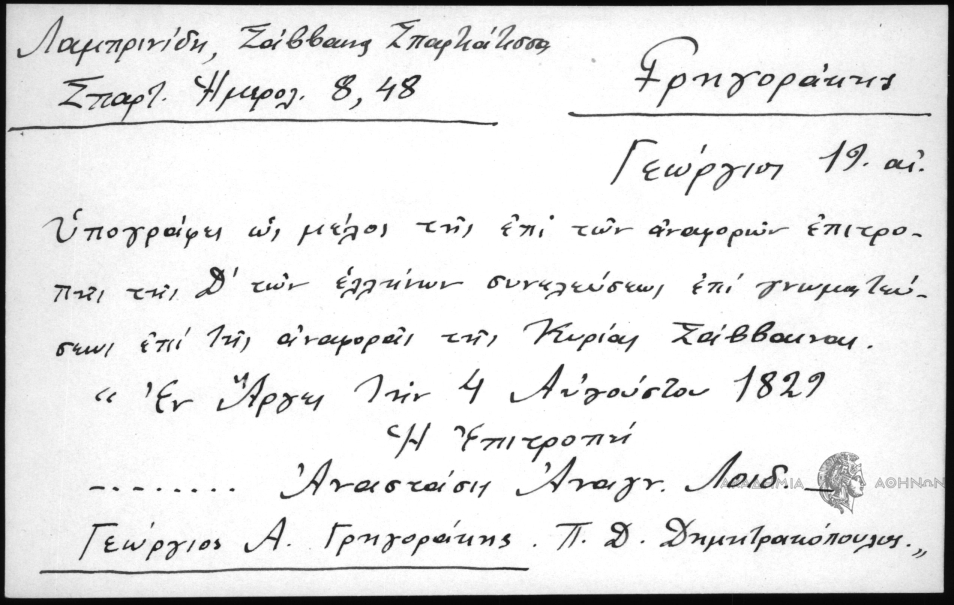 Λαμπρινίδη, Σάββαινα Σπαρτιάτισσα
Σπαρτ. Ἡμερολ. 8, 48
Γρηγοράκης
Γεώργιος 19. αἰ.
Ὑπογράφει ὡς μέλος τῆς ἐπὶ τῶν ἀναφορῶν ἐπιτρο-
πῆς τῆς Δ' τῶν ἑλλήνων συνελεύσεως ἐπὶ γνωματεύ-
σεως ἐπὶ τῆς ἀναφορᾶς τῆς Κυρίας Σάββαινας.
“ Ἐν Ἄργει τὴν 4 Αὐγούστου 1829
Ἡ Ἐπιτροπή
......... Ἀναστάσης Ἀναγν. Λοιδ. _
ΑΚΑΔΗΜΙΑ ΑΘΗΝΩΝ
Γεώργιος Α. Γρηγοράκης. Π. Δ. Δημητρακόπουλος. „